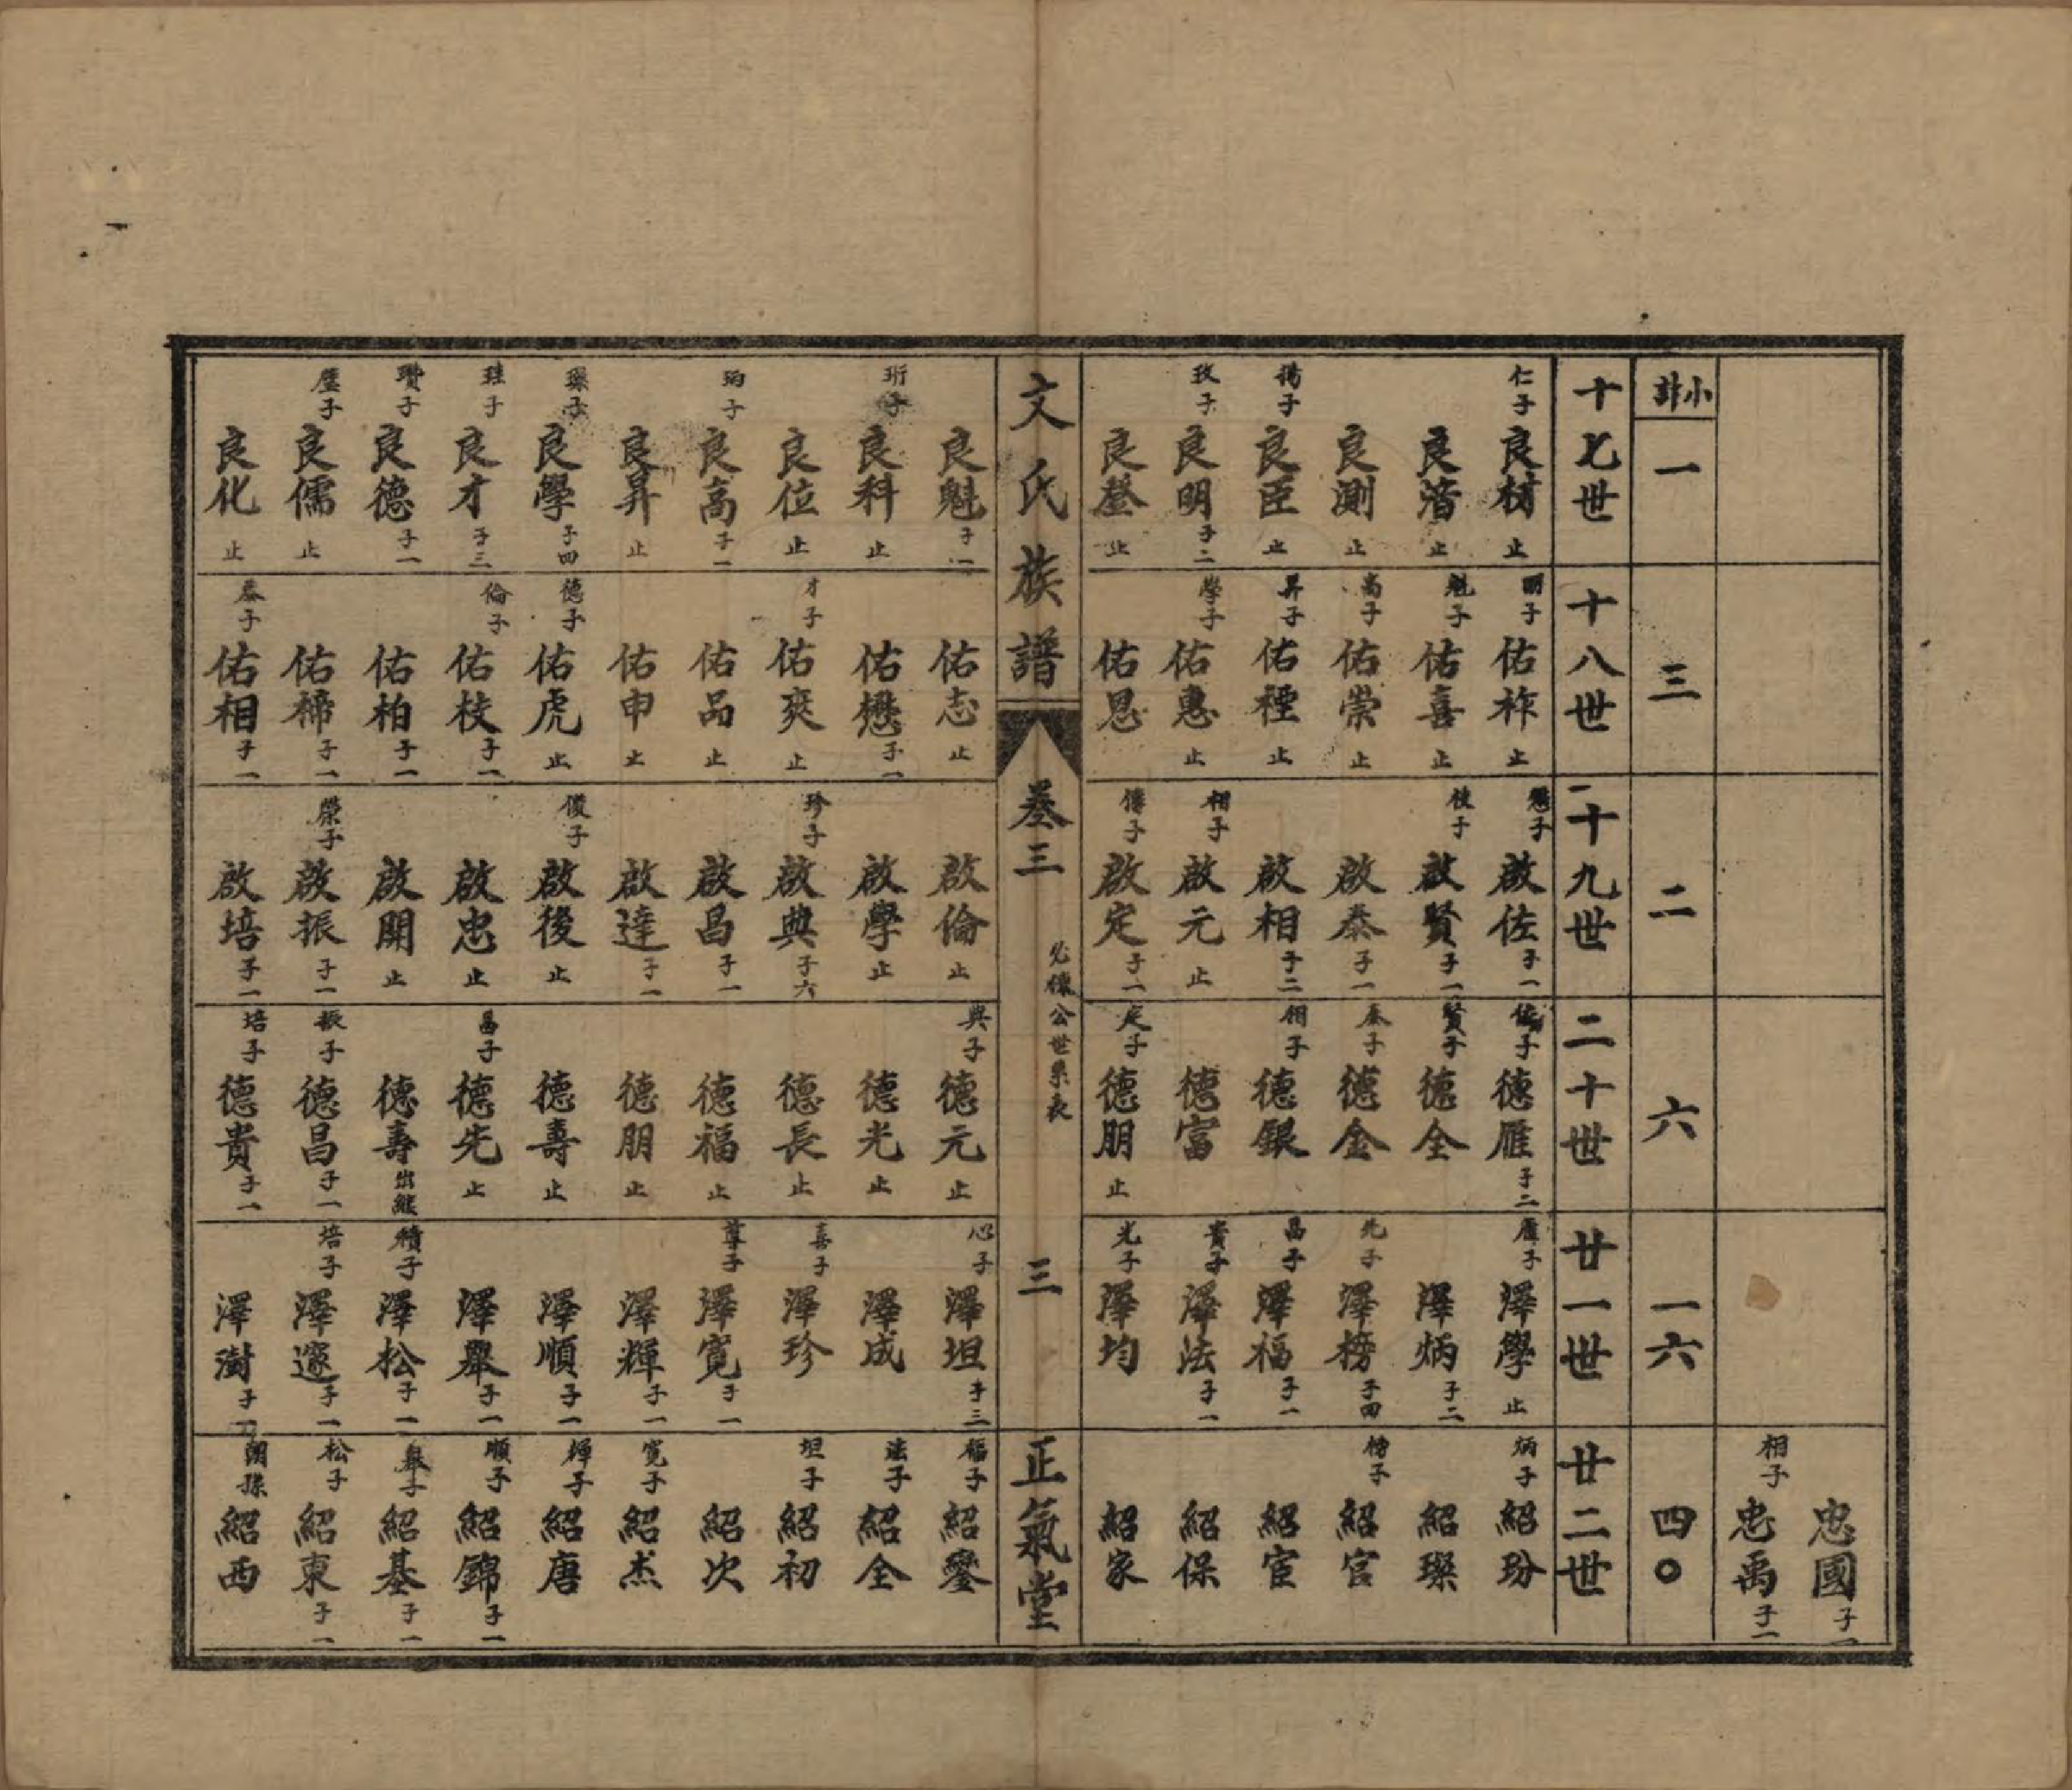 忠國 子一
相子 忠禹 子一
小計
一
三
二
六
一六
四〇
十七世
仁子 良材 止
良濳 止
良測 止
揚子 良臣 止
玫子 良明 子二
良登 止
良魁 子一
珩子 良科 止
良位 止
珣子 良高 子一
良昇 止
良學 子四
珪子 良才 子三
瓚子 良德 子一
良儒 止
良化 止
十八世
明子 佑祚 止
魁子 佑喜 止
高子 佑崇 止
昇子 佑 止
學子 佑惠 止
佑恩
佑志 止
佑懋 子一
才子 佑爽 止
佑品 止
佑申 止
德子 佑虎 止
倫子 佑枝 子一
佑柏 子一
佑 子一
泰子 佑相 子一
十九世
懋子 啟佐 子一
枝子 啟賢 子一
啟泰 子一
啟相 子二
相子 啟元 止
傳子 啟定 子一
啟倫 止
啟學 止
珍子 啟典 子六
啟昌 子一
啟達 子一
俊子 啟後 止
啟忠 止
啟開 止
榮子 啟振 子一
啟培 子一
二十世
佐子 德雁 子二
賢子 德全
泰子 德金
相子 德銀
德富
定子 德朋 止
典子 德元 止
德光 止
德長 止
德福 止
德朋 止
德壽 止
昌子 德先 止
德壽 出繼
振子 德昌 子一
培子 德貴 子一
廿一世
雁子 澤學 止
澤炳 子二
先子 澤榜 子四
昌子 澤福 子一
貴子 澤法 子一
光子 澤均
心子 澤坦 子三
澤成
喜子 澤珍
尊子 澤寬 子一
澤輝 子一
澤順 子一
澤舉 子一
積子 澤松 子一
培子 澤邃 子一
澤澍 子一
廿二世
炳子 紹玢
紹璨
榜子 紹官
紹宦
紹保
紹家
福子 紹鑾
法子 紹全
坦子 紹初
紹次
寬子 紹杰
輝子 紹唐
順子 紹錦 子一
舉子 紹基 子一
松子 紹東 子一
紹西
文氏族譜
卷三
公世系表
三
正氣堂